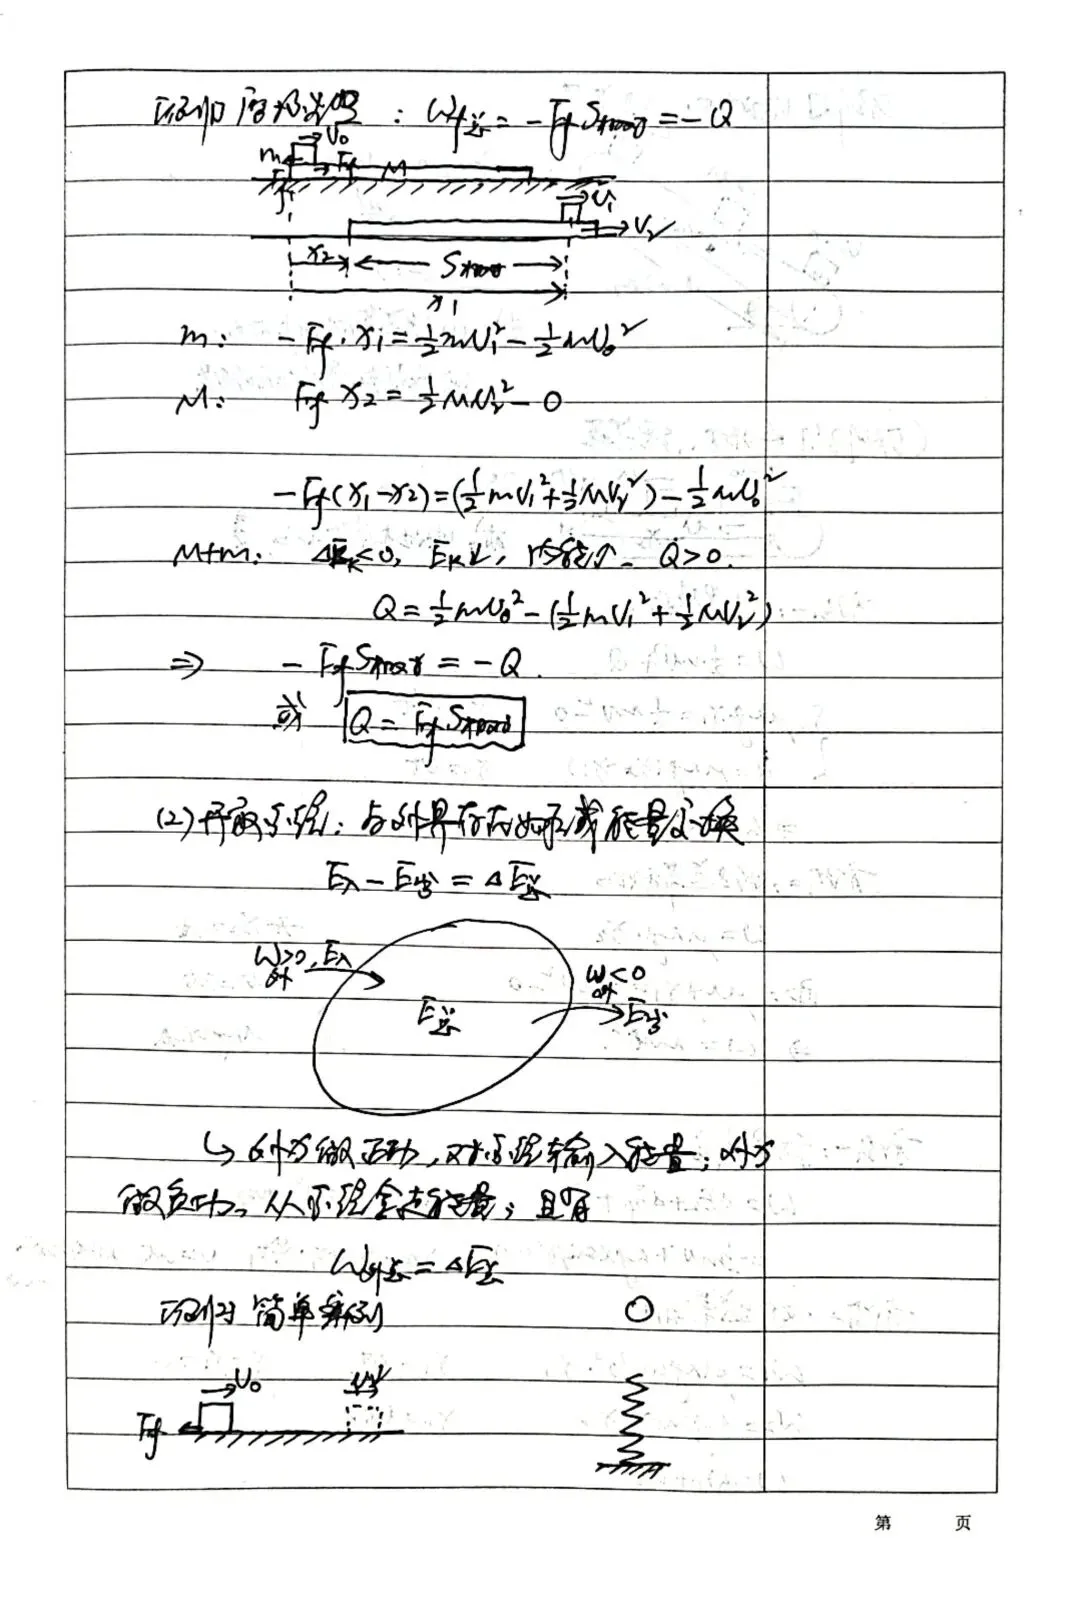 摩擦生热 : Wf总 = -Ff S相对 = -Q
v₀
m Ff M
Ff
v₁
v₂
x₂ S相对
x₁
m: -Ff·x₁ = ½mv₁² - ½mv₀²
M: Ff x₂ = ½Mv₂² - 0
-Ff(x₁-x₂) = (½mv₁² + ½Mv₂²) - ½mv₀²
M+m: ΔEk<0, Ek↓, 内能↑ Q>0.
Q = ½mv₀² - (½mv₁² + ½Mv₂²)
⇒ -Ff S相对 = -Q.
或 Q = Ff S相对
(2) 开放系统: 与外界存在 能量交换
E入 - E出 = ΔE总
W外>0, E入
W外<0
E总 E出
↳ 外力做正功, 对系统输入能量; 外力
做负功, 从系统拿走能量; 且有
W外总 = ΔE总
简单案例
v₀ v
Ff
第 页